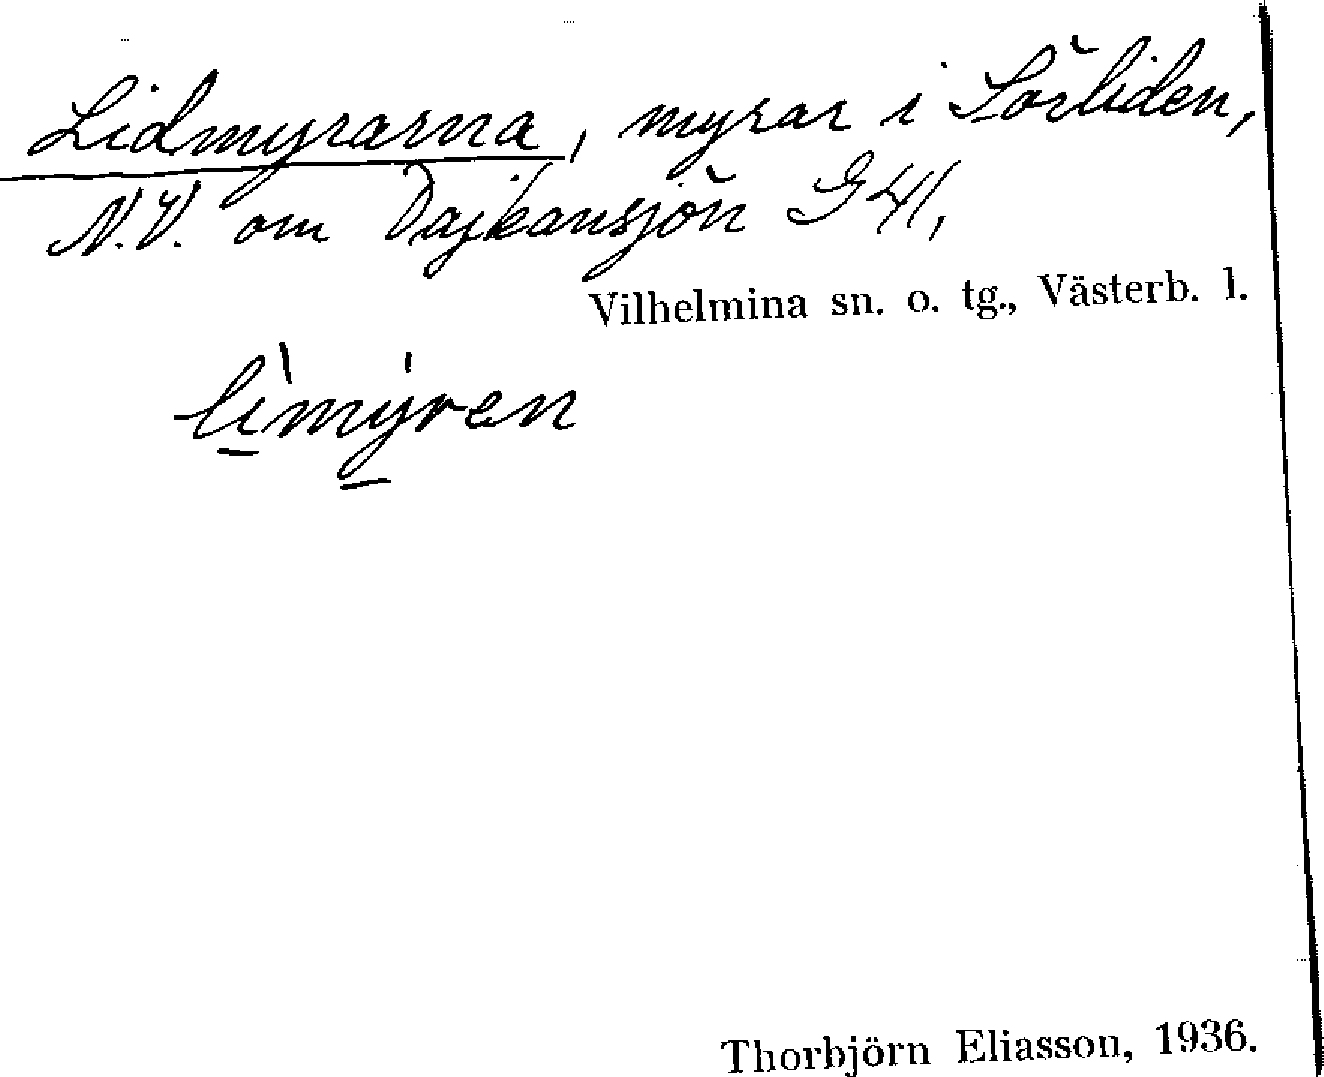 Lidmyrarna, myrar i Sörliden,
N.V. om Dajkansjön G 41,
Vilhelmina sn. o. tg., Västerb. l.
li̱`my̱'ren
Thorbjörn Eliasson, 1936.